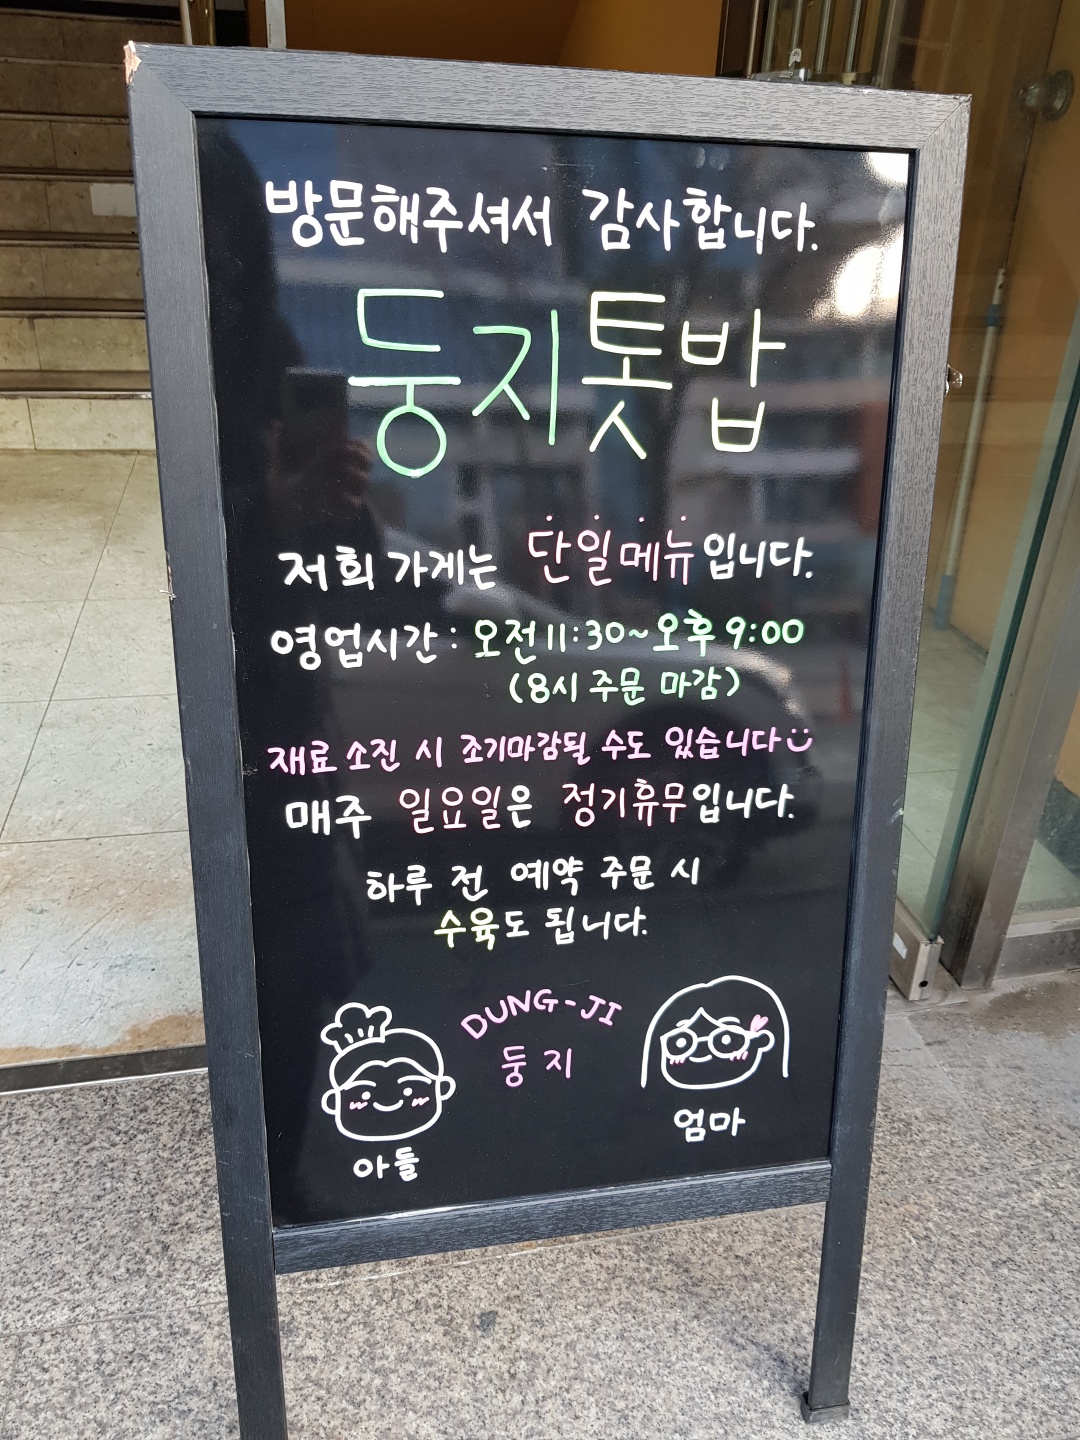 방문해주셔서 감사합니다.
둥지톳밥
저희 가게는 단일메뉴입니다.
영업시간: 오전11:30~오후9:00
(8시 주문 마감)
재료 소진 시 조기마감될 수도 있습니다
매주 일요일은 정기휴무입니다.
하루 전 예약 주문 시
수육도 됩니다.
DUNG-JI
둥지
엄마
아들